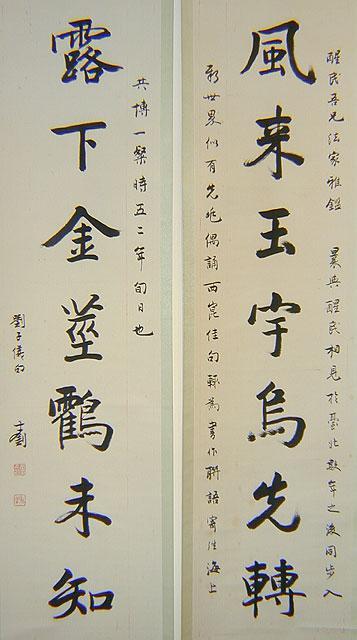 醒民吾兄法家雅鑑 曩與醒民相見於臺北數年之後同步入
風来玉宇烏先轉
新世界似有先兆偶誦西崑佳句輒為書作聯語寄住海上
共博一粲時五二年旬日也
露下金莖鸖未知
劉子儀句